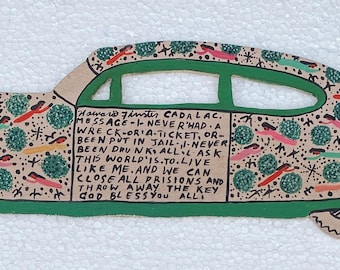 Howard Finster CADALAC.
MESSAGE-I-NEVER'HAD.A
WRECK-OR'A-TICKET. OR
BEEN.PVT IN JAIL.I.NEVER
BEEN.DRUNK.ALL.I.ASK
THIS WORLD'IS.TO.LIVE
LIKE ME.AND.WE CAN
CLOSE ALL PRISIONS AND
THROW AWAY THE KEY
GOD BLESS YOU ALLI